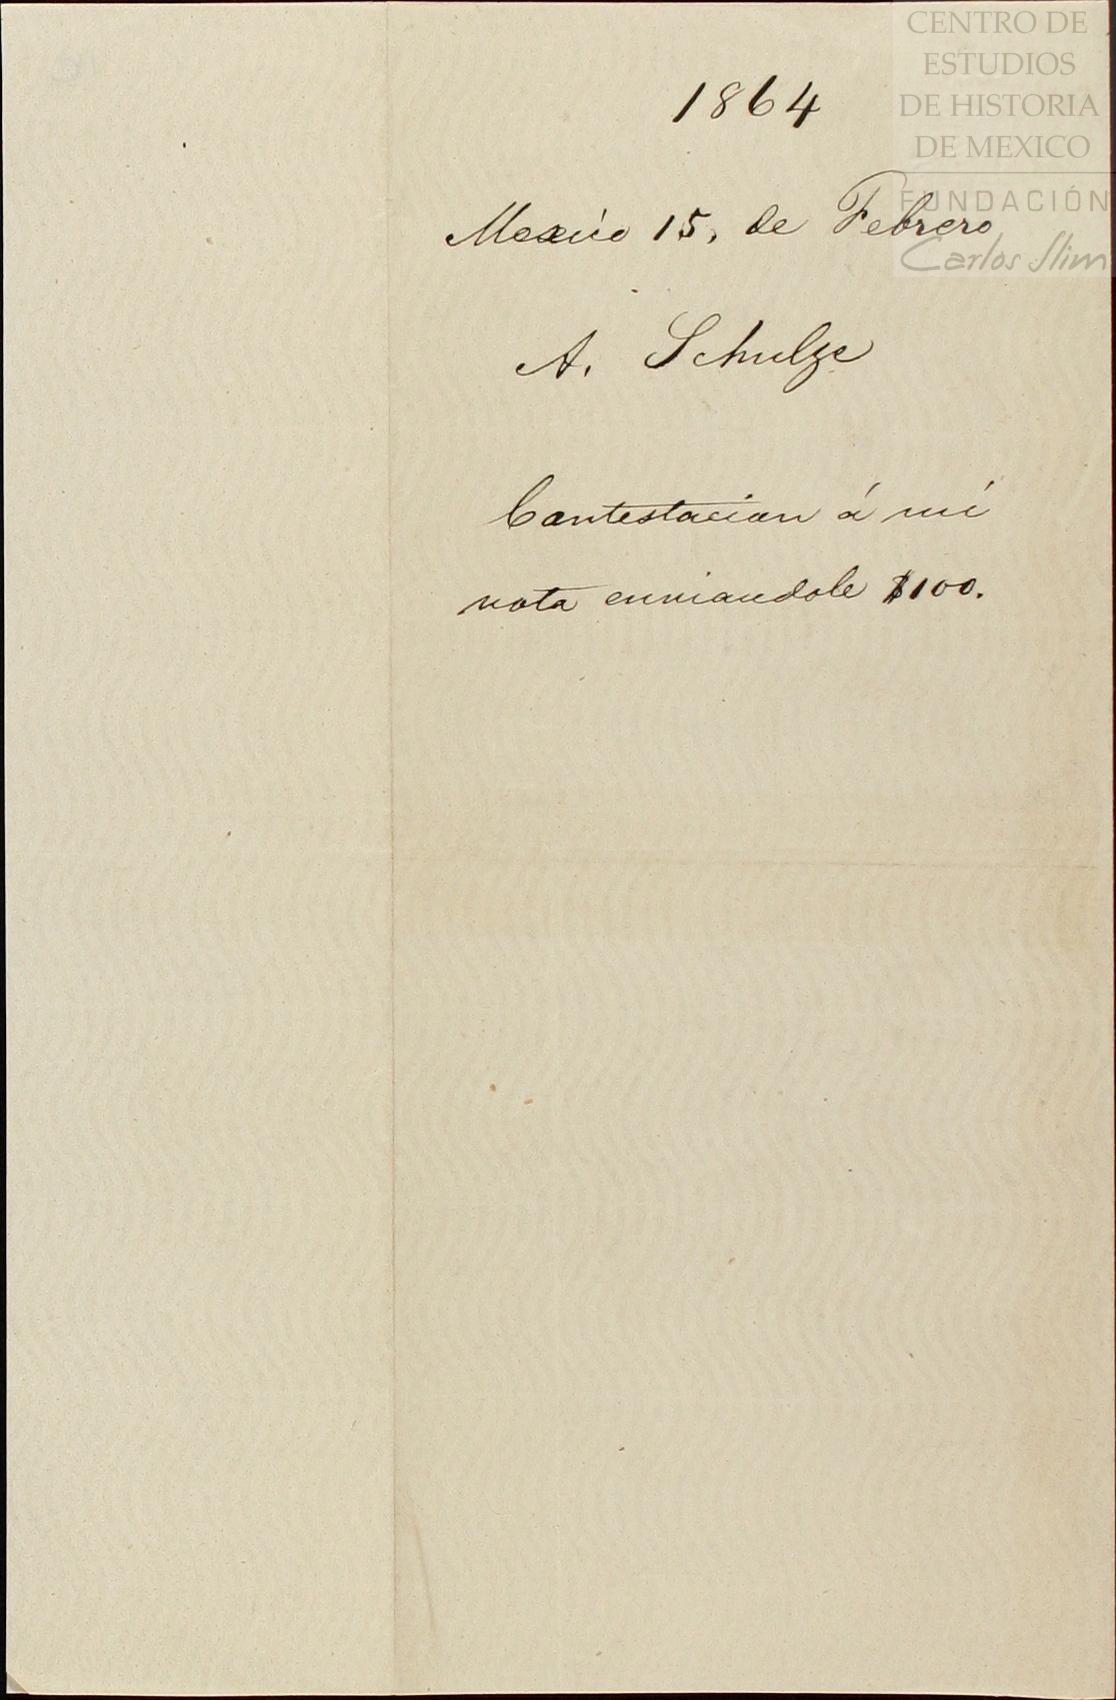 CENTRO DE
ESTUDIOS
DE HISTORIA
DE MEXICO
FUNDACIÓN
Carlos Slim
1864
Mexico 15, de Febrero
A. Schulze
Contestacion á mi
nota enviandole $100.